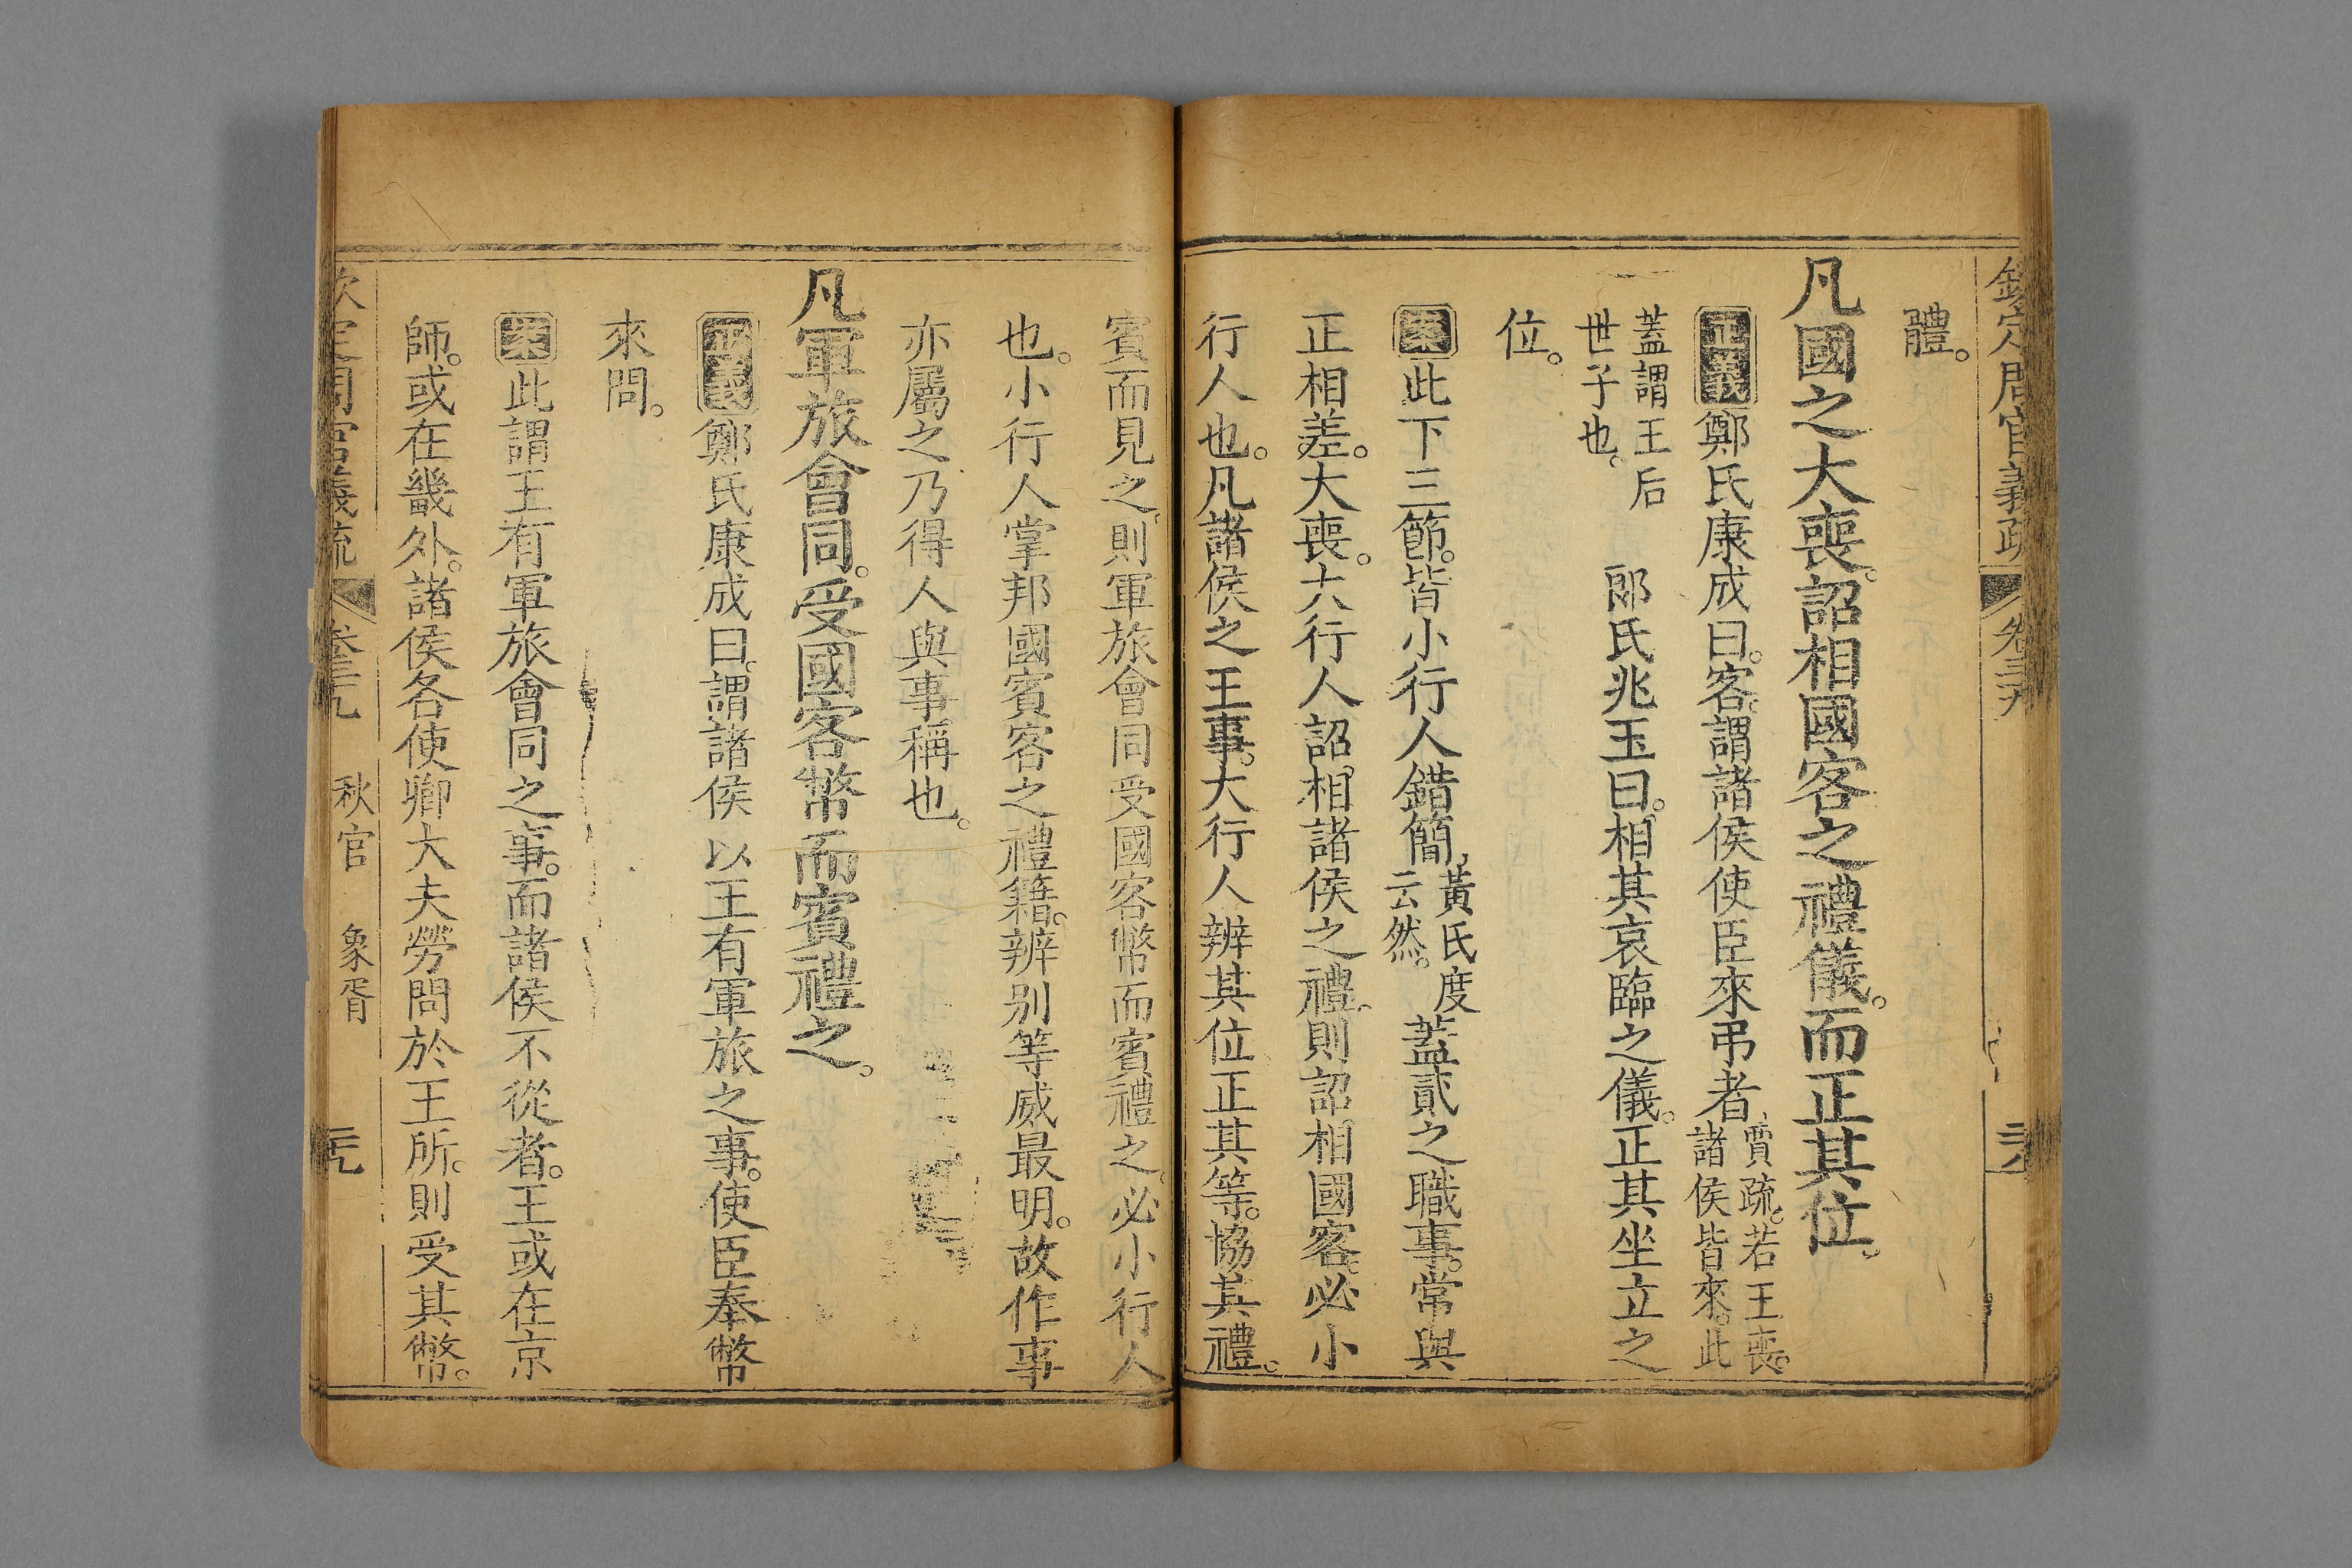 欽定周官義疏 卷三九 二六
體。
凡國之大喪。詔相國客之禮儀。而正其位。
正義鄭氏康成曰。客。謂諸侯使臣來弔者。賈疏。若王喪。諸侯皆來。此
蓋謂王后世子也。 郎氏兆玉曰。相其哀臨之儀。正其坐立之
位。
案此下三節。皆小行人錯簡。黃氏度云然。蓋貳之職事。常與
正相差。大喪。大行人詔相諸侯之禮。則詔相國客。必小
行人也。凡諸侯之王事。大行人辨其位正其等。協其禮。
賓而見之。則軍旅會同受國客幣而賓禮之。必小行人
也。小行人掌邦國賓客之禮籍。辨别等威最明。故作事
亦屬之乃得人與事稱也。
凡軍旅會同。受國客幣而賓禮之。
正義鄭氏康成曰。謂諸侯以王有軍旅之事。使臣奉幣
來問。
案此謂王有軍旅會同之事。而諸侯不從者。王或在京
師。或在畿外。諸侯各使卿大夫勞問於王所。則受其幣。
欽定周官義疏 卷三九 秋官 象胥 元